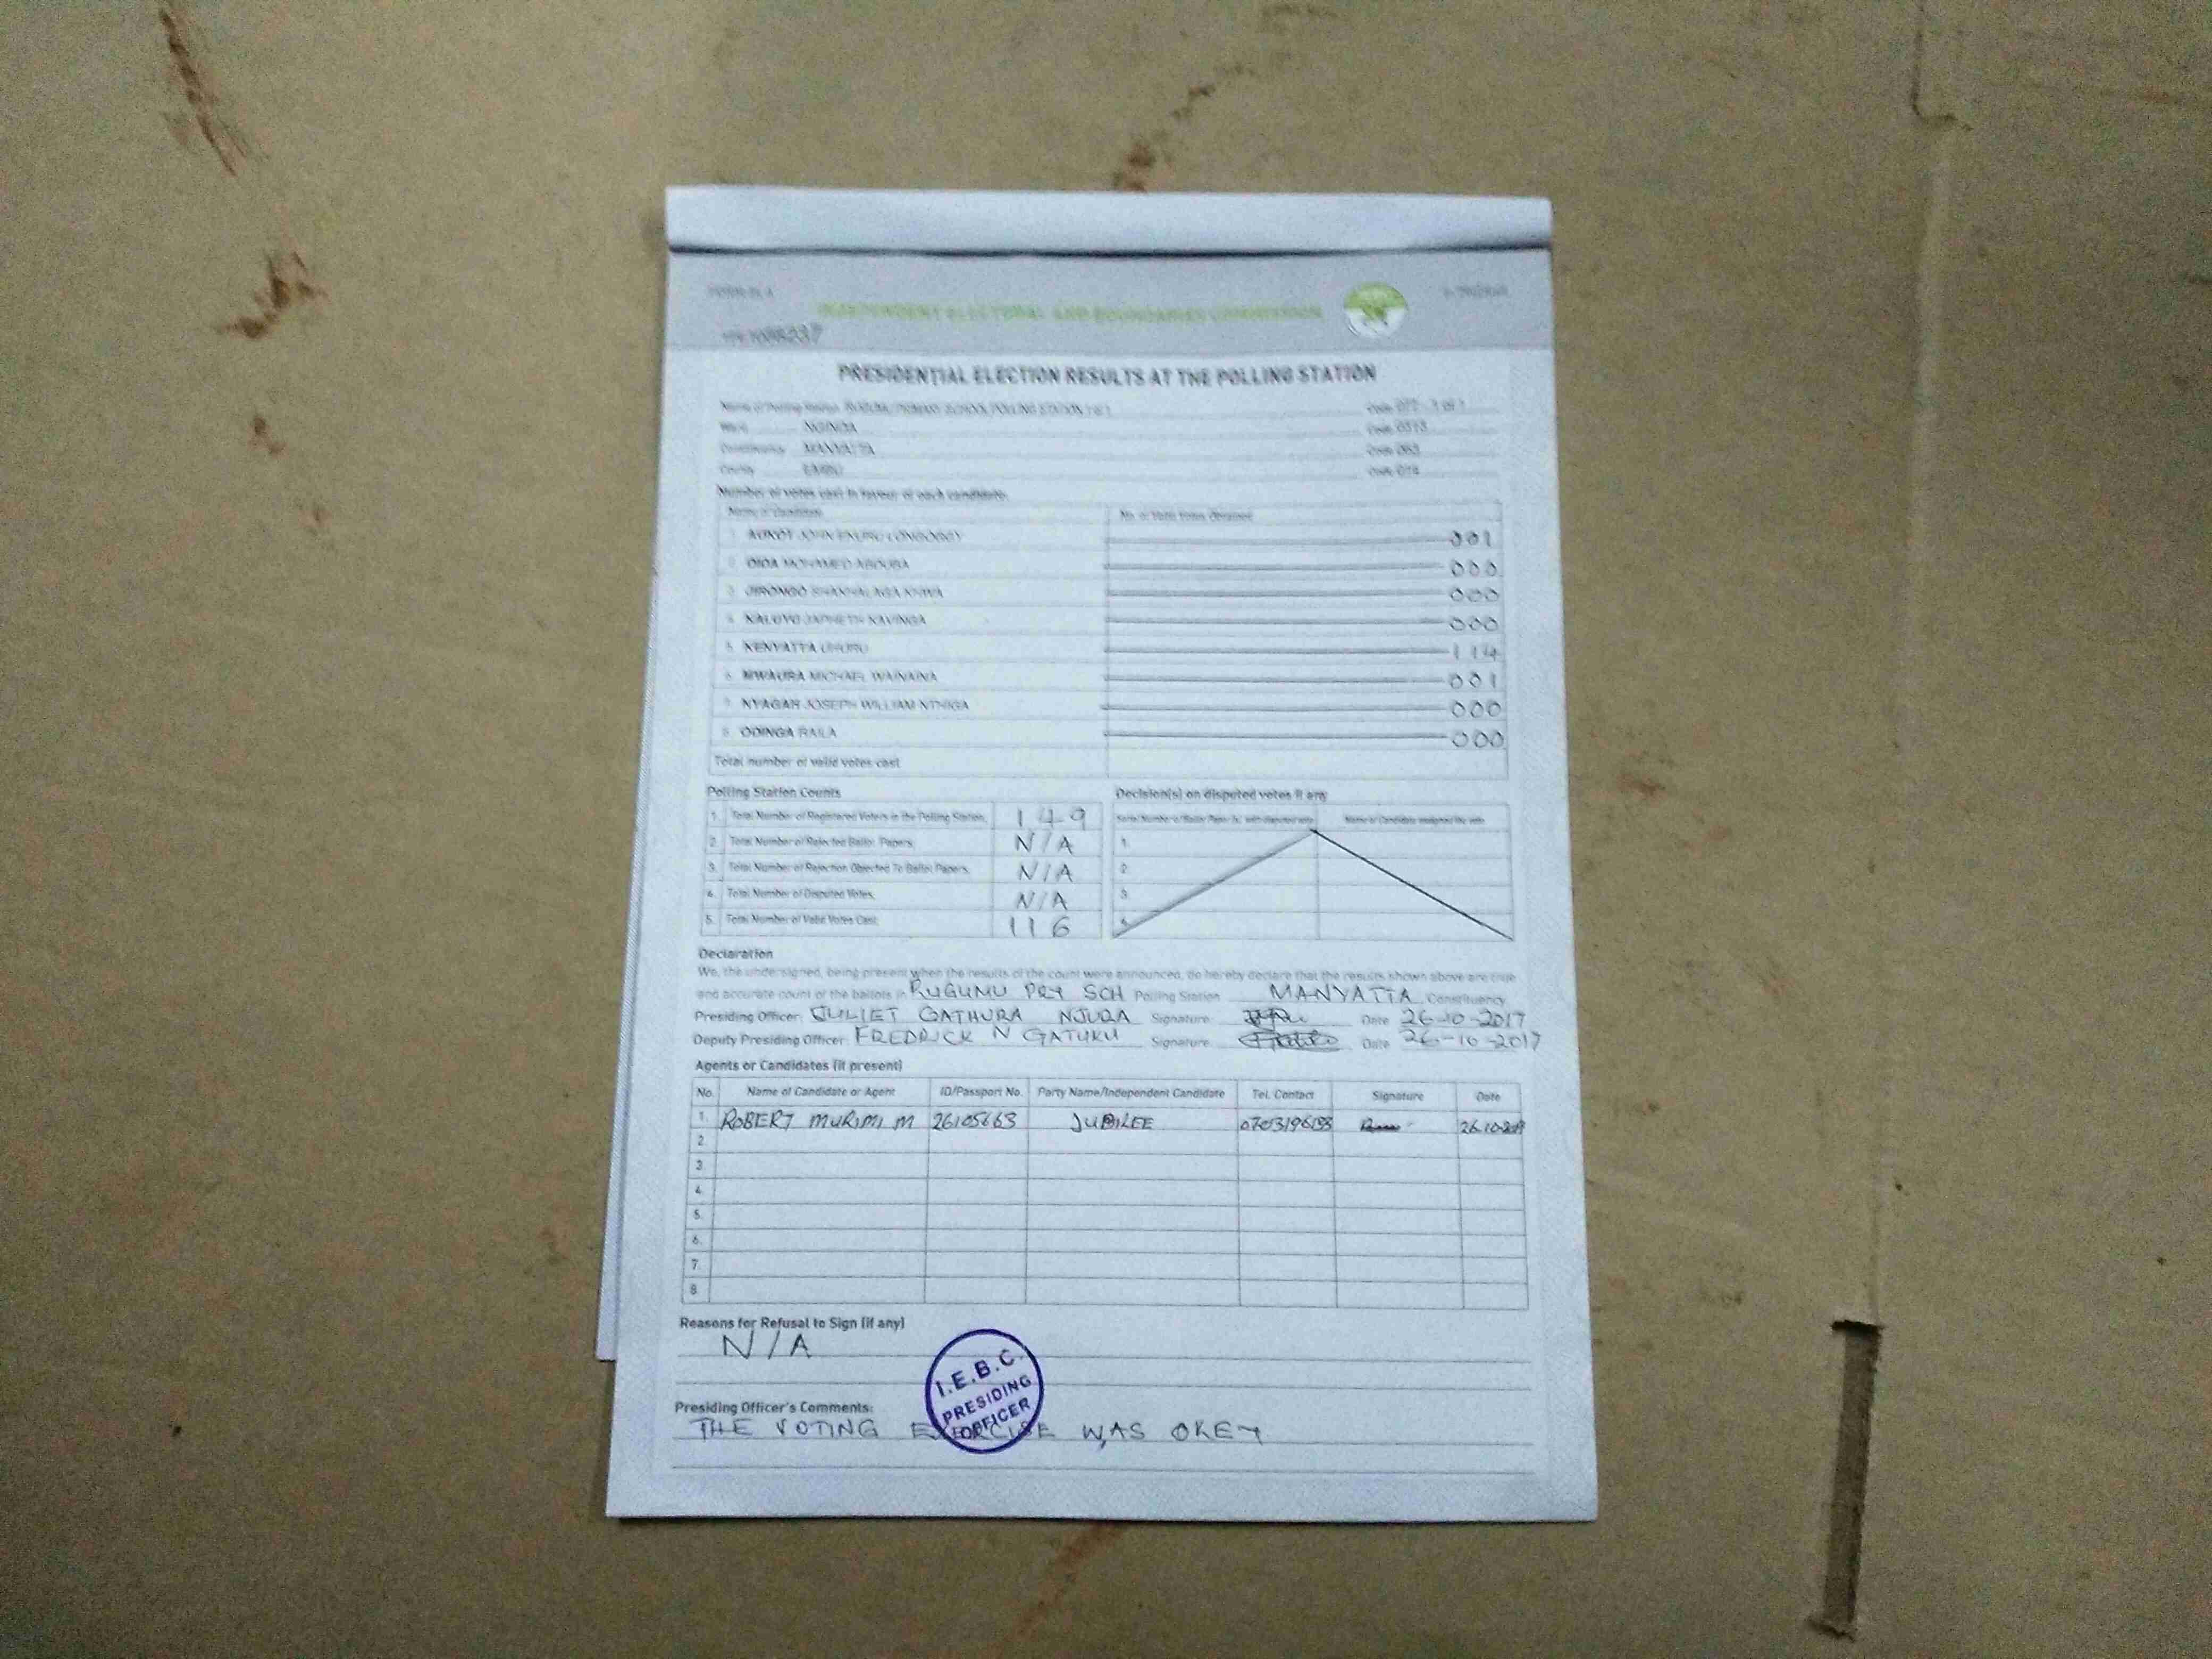 INDEPENDENT ELECTORAL AND BOUNDARIES COMMISSION
PRESIDENTIAL ELECTION RESULTS AT THE POLLING STATION
Name of Polling Station PRIMARY SCHOOL POLLING STATION
Ward NGINDA
Constituency MANYATTA Code 063
County EMBU Code 014
Number of votes cast in favour of each candidate
Name of Candidate No. of Valid Votes Obtained
1. AUKOT JOHN EKURU LONGOGGY 001
2. DIDA MOHAMED ABDUBA 000
3. JIRONGO SHAKHALAGA KHWA 000
4. KALUYU JAPHETH KAVINGA 000
5. KENYATTA UHURU 114
6. MWAURA MICHAEL WAINAINA 001
7. NYAGAH JOSEPH WILLIAM NTHIGA 000
8. ODINGA RAILA 000
Total number of valid votes cast
Polling Station Counts Decision(s) on disputed votes if any
1. Total Number of Registered Voters in the Polling Station 149
2. Total Number of Rejected Ballot Papers N/A 1.
3. Total Number of Rejection Objected To Ballot Papers N/A 2.
4. Total Number of Disputed Votes N/A 3.
5. Total Number of Valid Votes Cast 116 4.
Serial Number of Ballot Paper (s) with disputed vote Name of Candidate assigned the vote
Declaration
We, the undersigned, being present when the results of the count were announced, do hereby declare that the results shown above are true
and accurate count of the ballots in RUGUMU PRY SCH Polling Station MANYATTA Constituency
Presiding Officer: JULIET GATHURA NJURA Signature Date 26-10-2017
Deputy Presiding Officer: FREDRICK N GATUKU Signature Date 26-10-2017
Agents or Candidates (if present)
No. Name of Candidate or Agent ID/Passport No. Party Name/Independent Candidate Tel. Contact Signature Date
1. ROBERT MURIMI M 26105663 JUBILEE
2.
3.
4.
5.
6.
7.
8.
Reasons for Refusal to Sign (if any)
N/A
I.E.B.C.
PRESIDING
OFFICER
Presiding Officer's Comments:
THE VOTING EXERCISE WAS OKEY